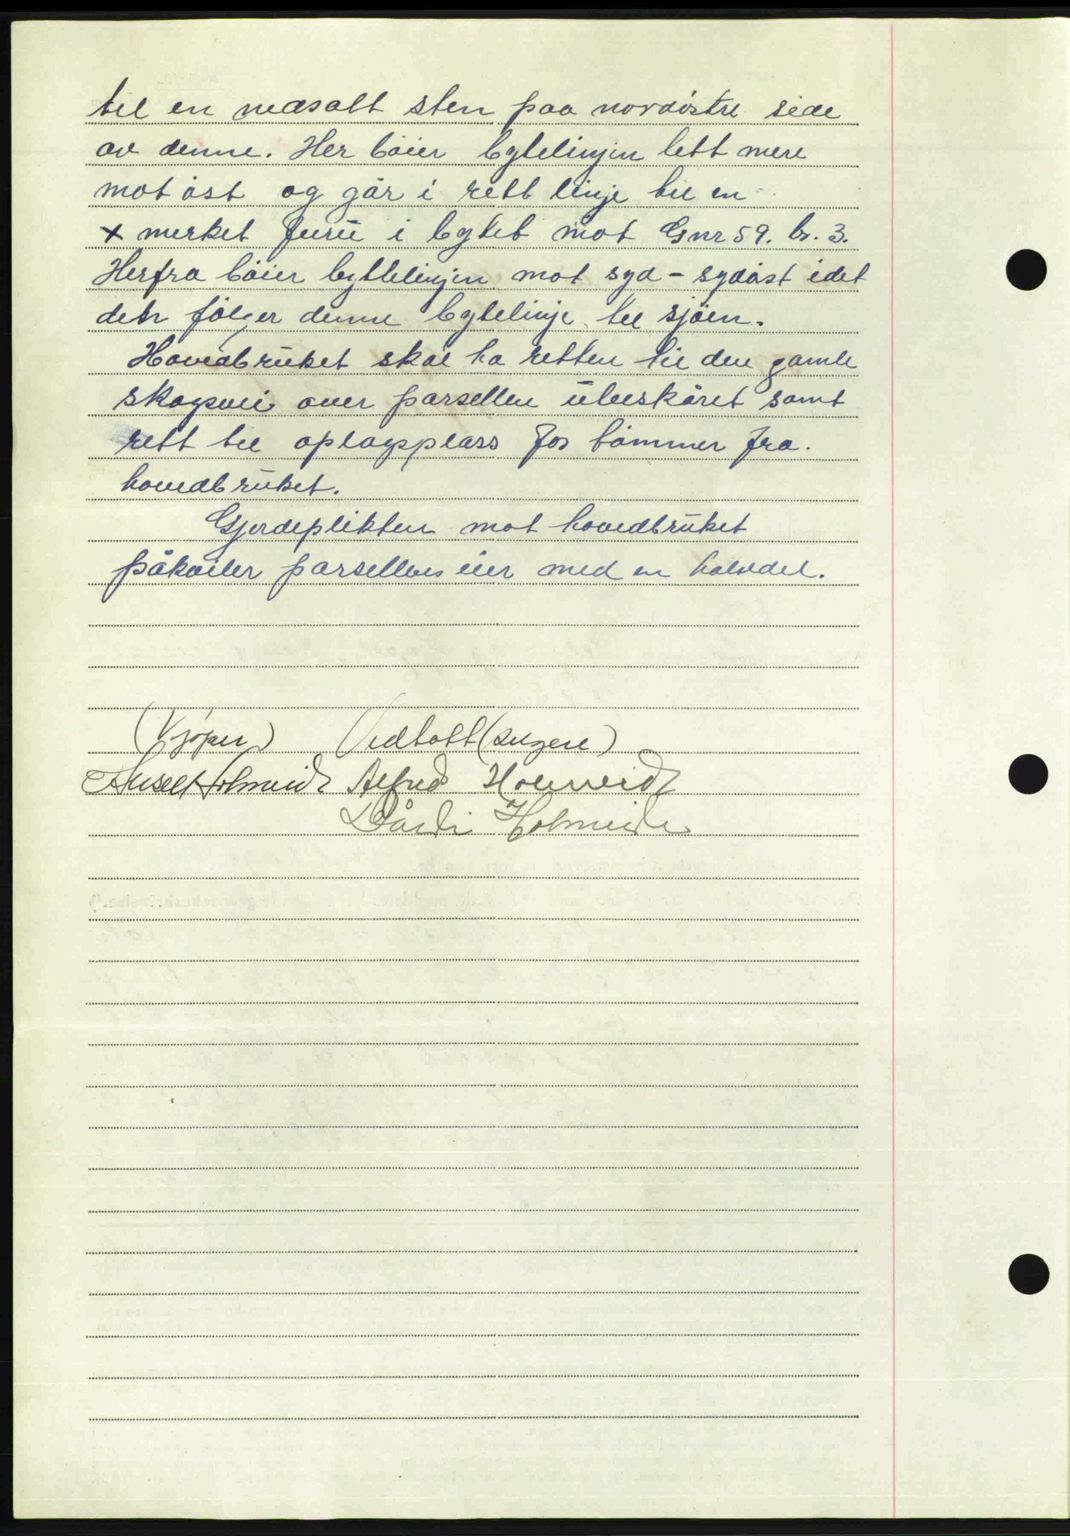 til en nedsatt sten paa nordöstre side
av denne. Her böier bytelinjen lett mere
mot öst og går i rett linje til en
x merket furu i bytet mot Gnr 59. br. 3.
Herfra böier byttelinjen mot syd - sydöst idet
den fölger denne bytelinje til sjöen.
Hovedbruket skal ha retten til den gamle
skogsvei over parsellen ubeskåret samt
rett til oplagsplass for tömmer fra
hovedbruket.
Gjerdeplikten mot hovedbruket
påkviler parsellens eier med en halvdel.
(Kjöper) Vedtatt (selgere)
Holmeide Alfred Holmeide
Holmeide